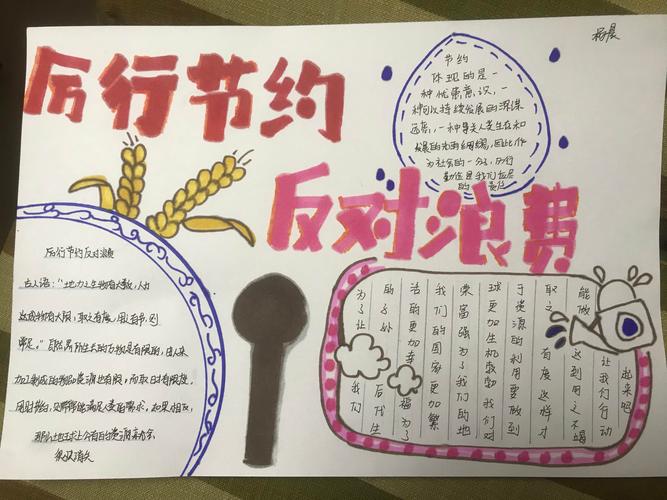 厉行节约
反对浪费
节约
体现的是一
种忧患意识，一
种可以持续发展的深谋
远虑，一种导致人类生存和
发展的未雨绸缪，因此作
为社会的一分子，厉行
勤俭是我们应尽
的责任
厉行节约反对浪费
古人语：“地力之生物有大数，人力
之成物有大限，取之有度，用之有节，则
常足。”自然界所生长的万物是有限的，由人来
加工制成的物品资源也有限，而取时有限度，
用时节约，满足人类的需求。如果相反，
那么让地球上今有的资源
为了让我们
的子孙后代生
活的更加幸福为了
我们的国家更加繁
荣富强为了我们的地
球更加生机勃勃我们对
于资源的利用要做到
取之有度这样才
能做达到用之不竭
让我们行动
起来吧